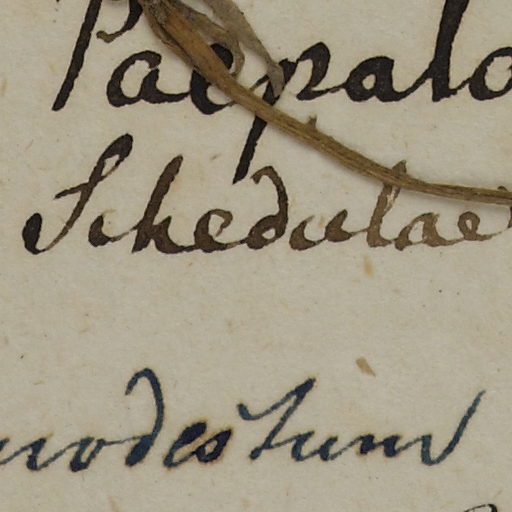 Paepalo
Schedulae
modestum